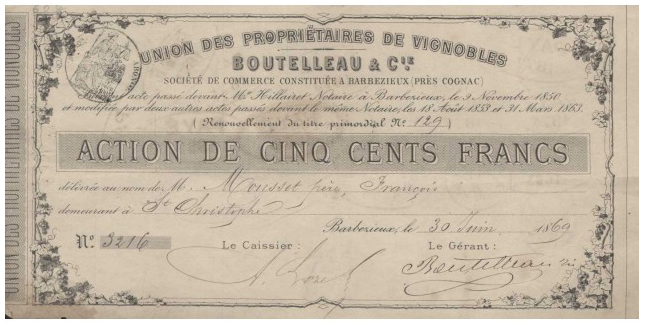 UNION DES PROPRIÉTAIRES DE VIGNOBLES
BOUTELLEAU & Cie
SOCIÉTÉ DE COMMERCE CONSTITUÉE A BARBEZIEUX (PRÈS COGNAC)
acte passé devant Me Hillairet Notaire à Barbezieux, le 9 Novembre 1850
et modifiée par deux autres actes passés devant le même Notaire, les 18 Août 1853 et 31 Mars 1863.
(Renouvellement du titre primordial No. 129)
ACTION DE CINQ CENTS FRANCS
délivrée au nom de M. Mousset père, François
demeurant à St Christophe
Barbezieux, le 30 Juin 1869
No. 3216
Le Caissier :
Le Gérant :
Boutelleau